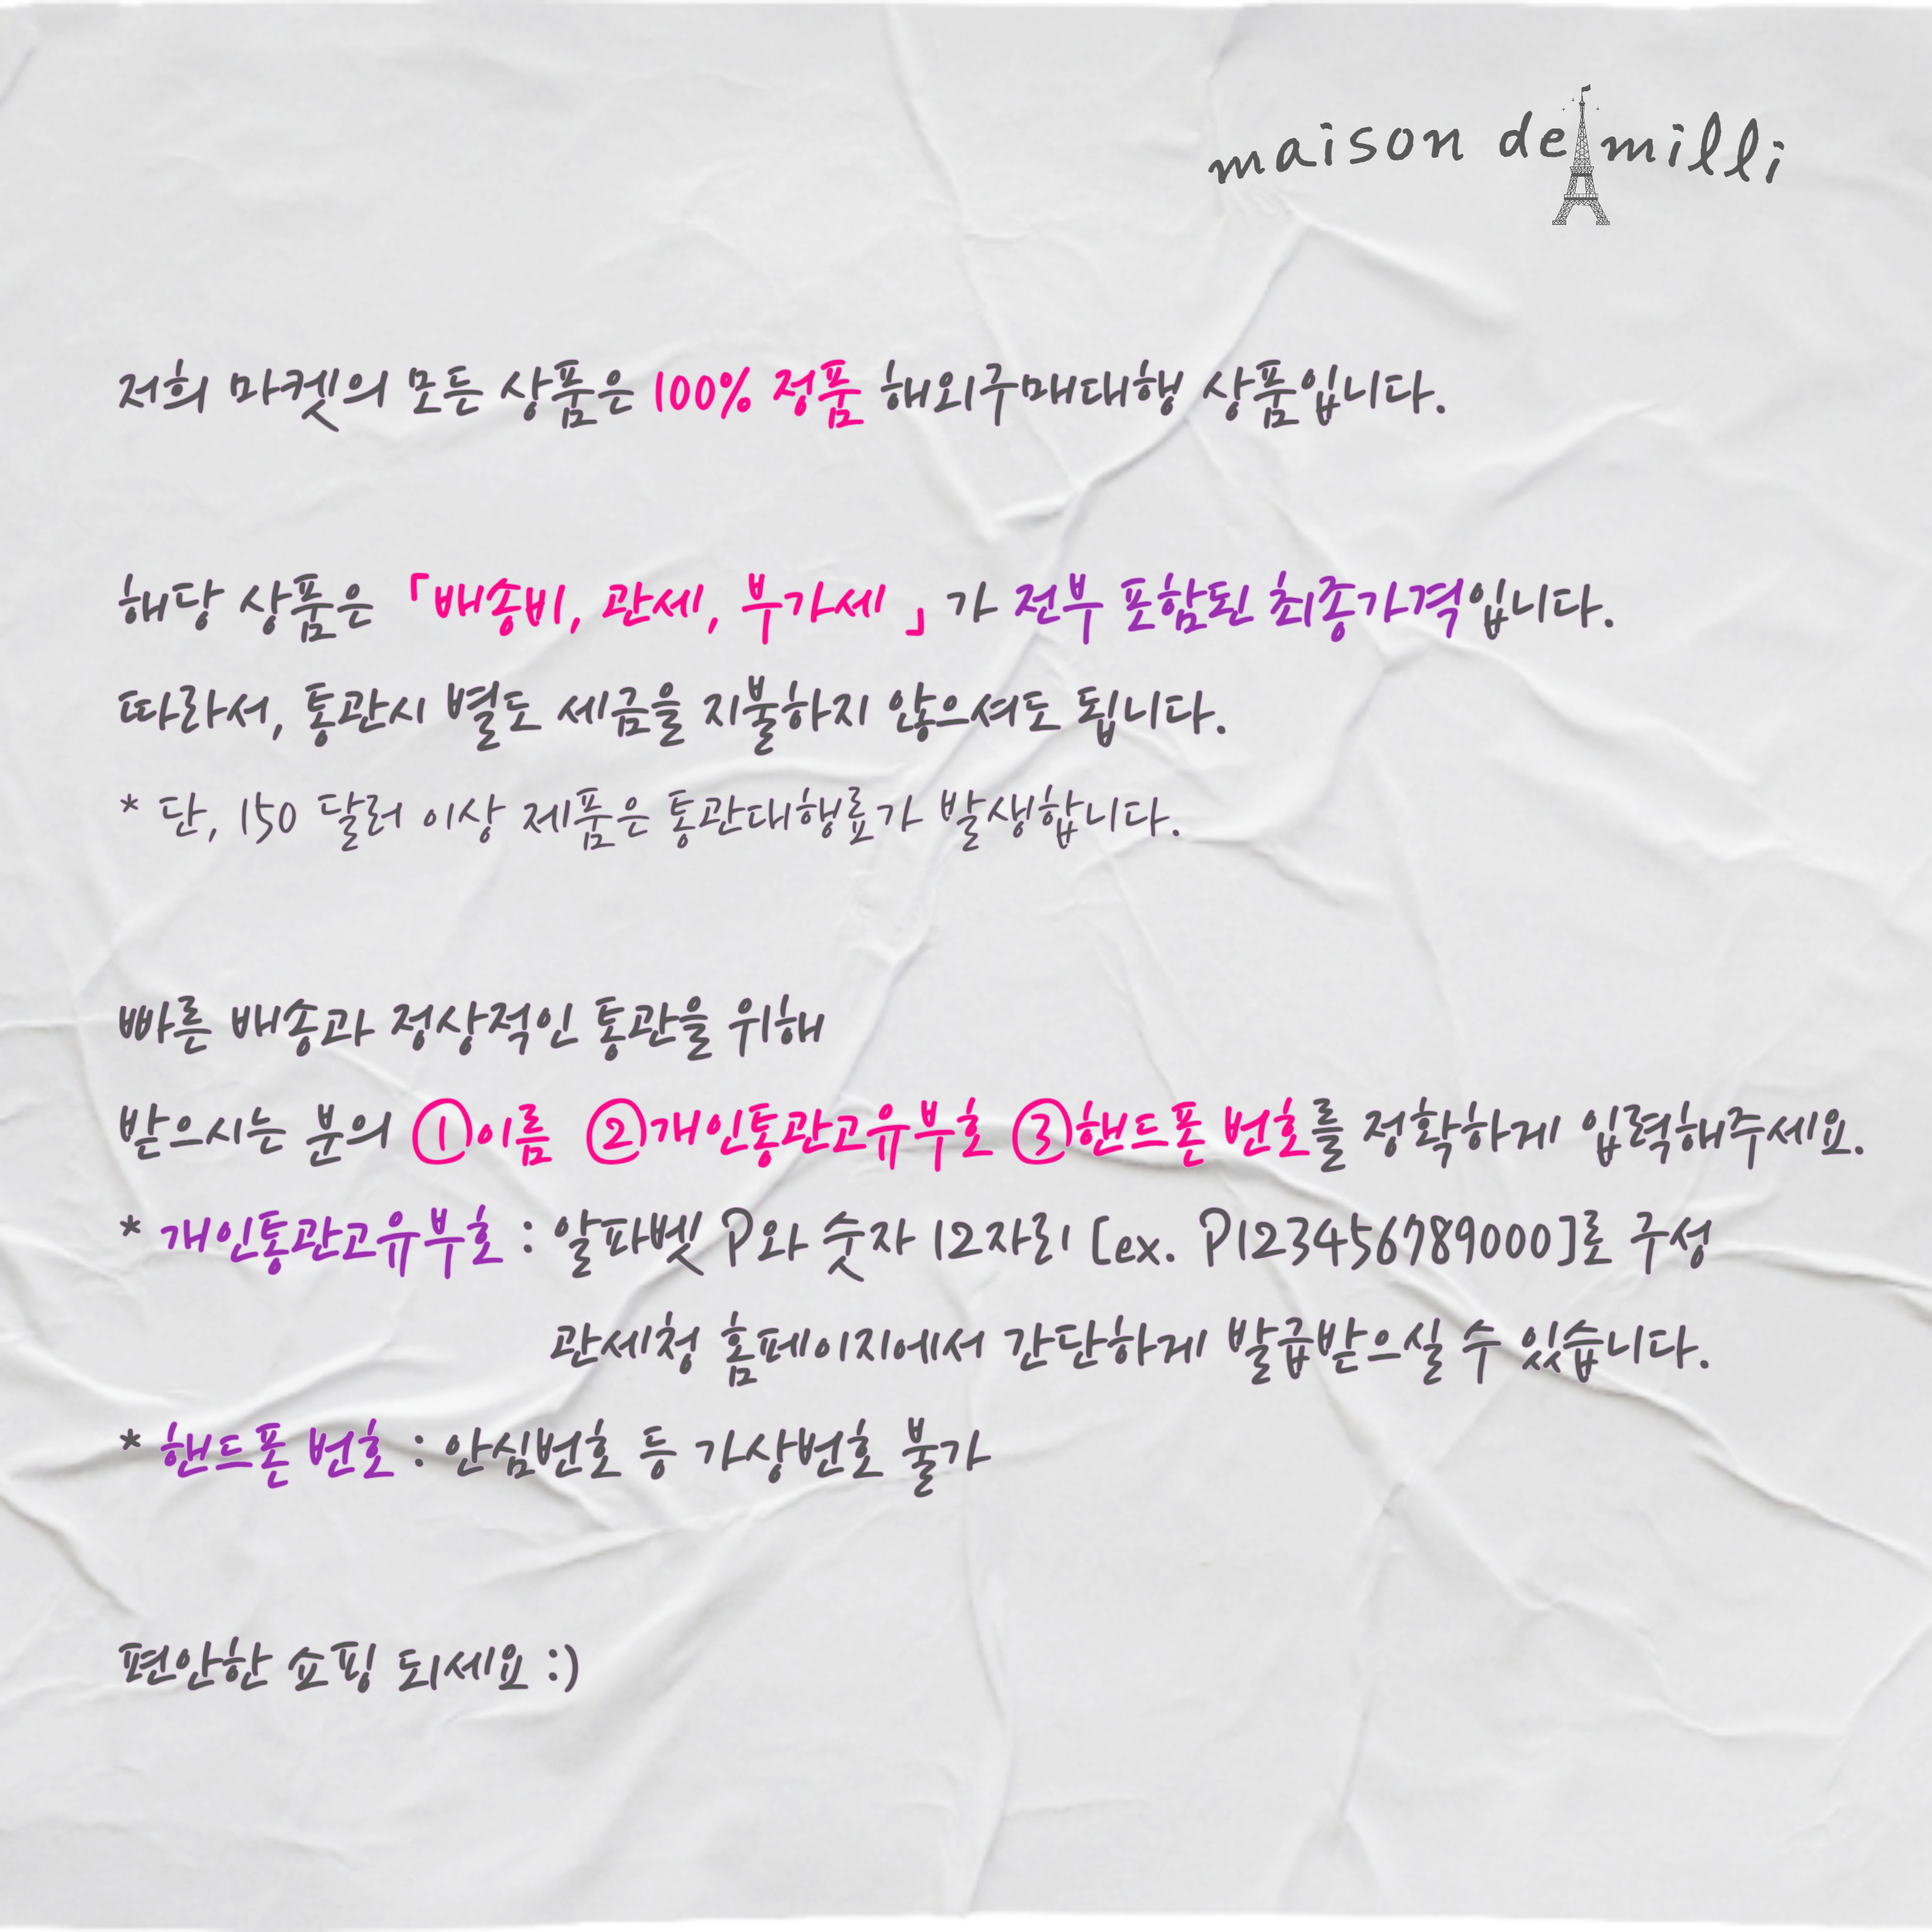 maison de milli
저희 마켓의 모든 상품은 100% 정품 해외구매대행 상품입니다.
해당 상품은 「배송비, 관세, 부가세」가 전부 포함된 최종가격입니다.
따라서, 통관시 별도 세금을 지불하지 않으셔도 됩니다.
* 단, 150 달러 이상 제품은 통관대행료가 발생합니다.
빠른 배송과 정상적인 통관을 위해
받으시는 분의 ①이름 ②개인통관고유부호 ③핸드폰 번호를 정확하게 입력해주세요.
* 개인통관고유부호 : 알파벳 P와 숫자 12자리 [ex. P123456789000]로 구성
관세청 홈페이지에서 간단하게 발급받으실 수 있습니다.
* 핸드폰 번호 : 안심번호 등 가상번호 불가
편안한 쇼핑 되세요 :)